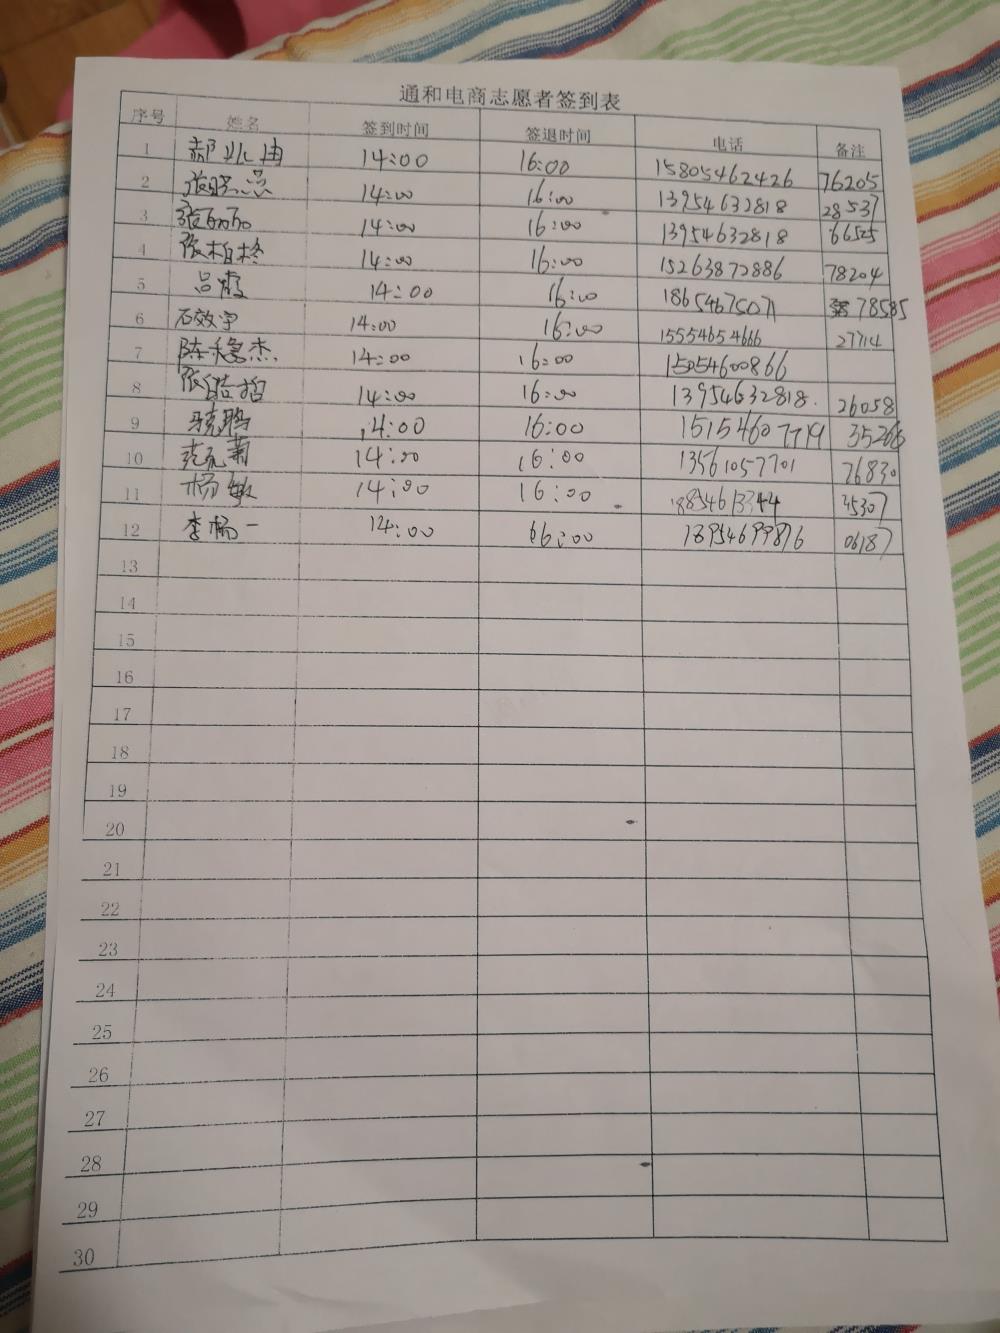 通和电商志愿者签到表
序号 姓名 签到时间 签退时间 电话 备注
1 14:00 16:00 15805462426 76205
2 14:00 16:00 13954632818 28537
3 张丽丽 14:00 16:00 13954632818 66525
4 张柏柊 14:00 16:00 15263872886 78204
5 吕霞 14:00 16:00 18654675071 78585
6 石效宇 14:00 16:00 15554654666 27714
7 陈稳杰 14:00 16:00 15054600866
8 张皓哲 14:00 16:00 13954632818 26058
9 14:00 16:00 15154607719 35266
10 14:00 16:00 13561057701 76830
11 杨敏 14:00 16:00 18854613344 45307
12 李杨一 14:00 16:00 18954699876 06187
13
14
15
16
17
18
19
20
21
22
23
24
25
26
27
28
29
30